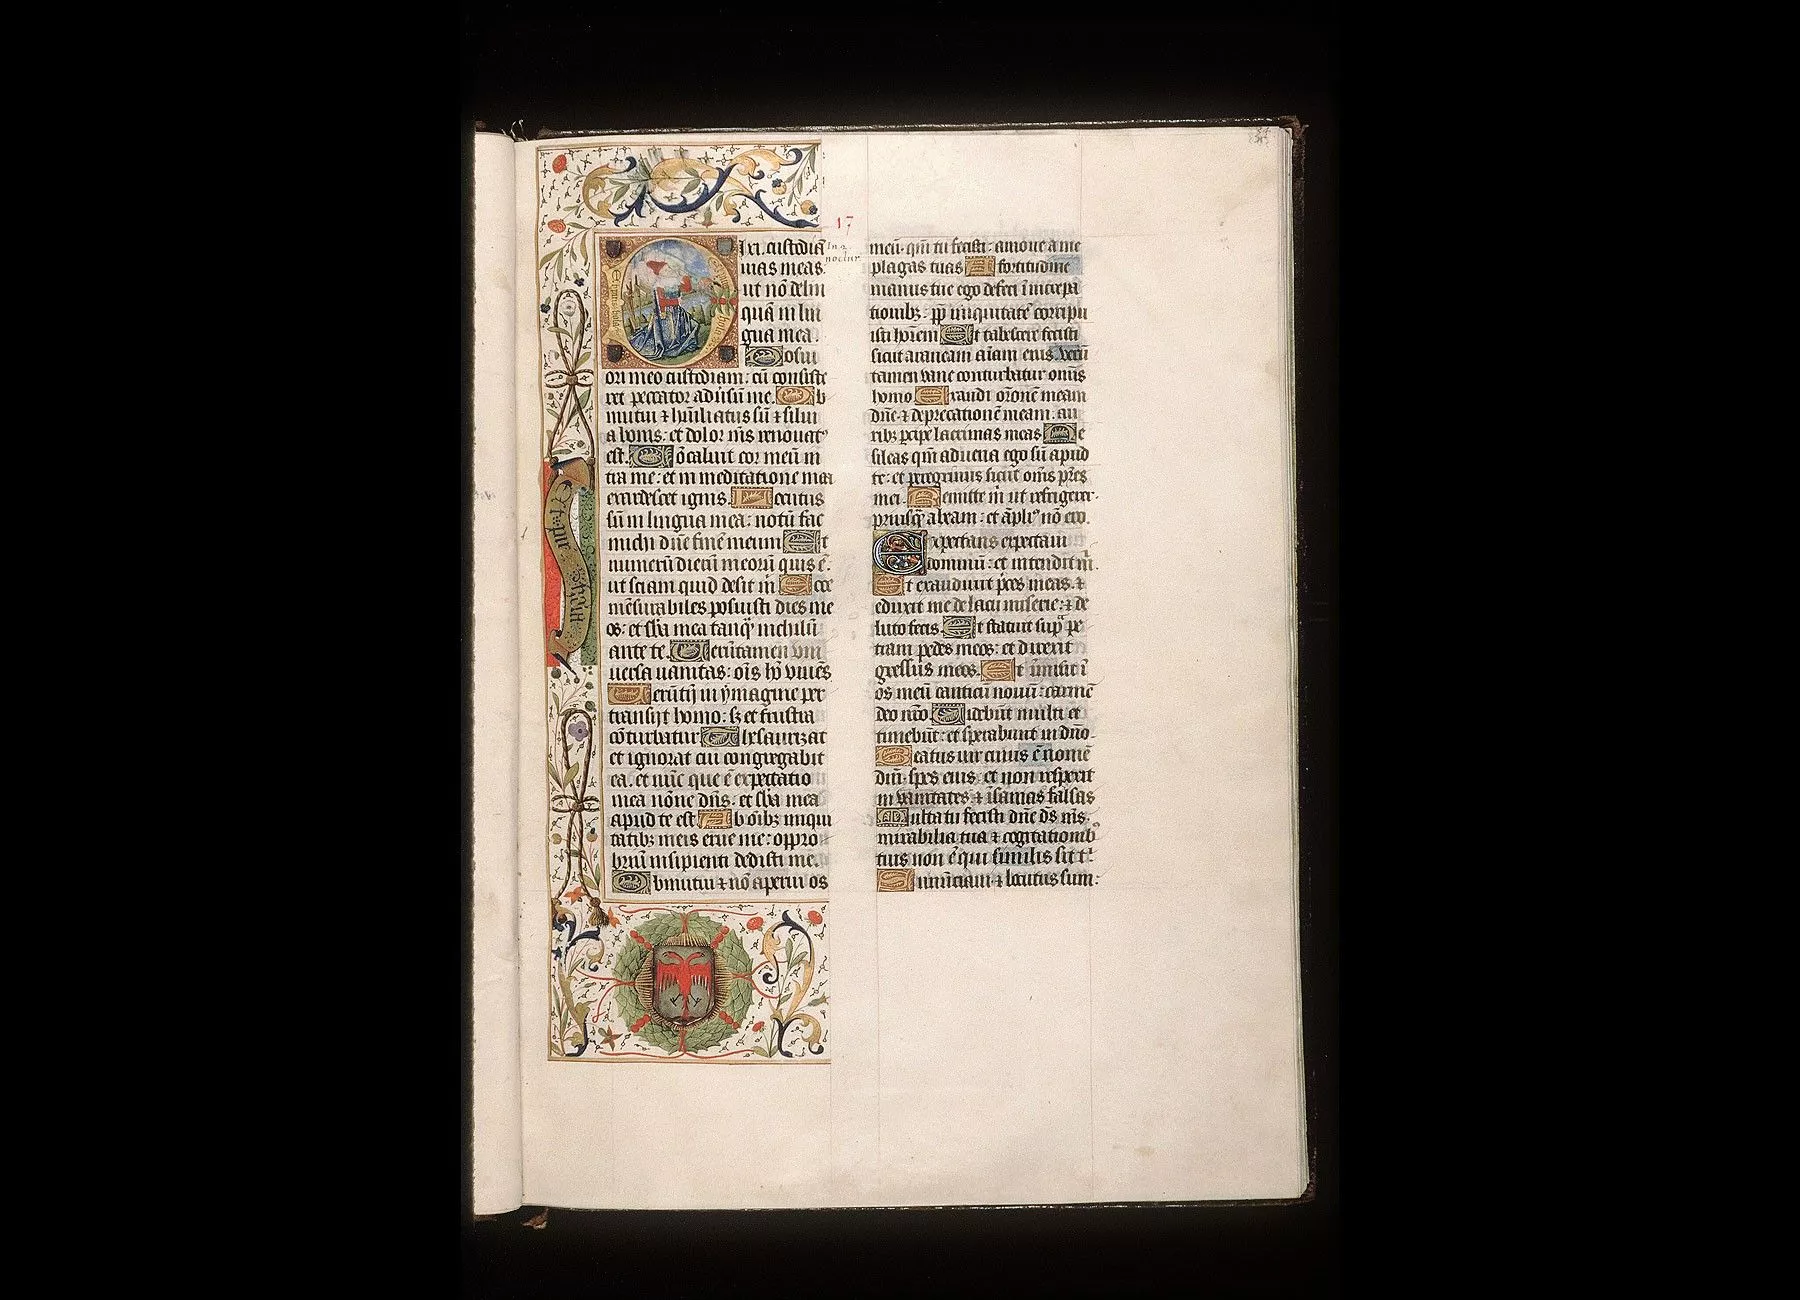 17
In 2
noctur
Ixi. custodiā
uias meas:
ut nō delin
quā in lin
gua mea.
Posui
ori meo custodiam: cū consiste
ret peccator aduersū me. Ob
mutui ⁊ humiliatus sū ⁊ silui
a bonis: et dolor m̄s renouatꝰ
est. Concaluit cor meū in
tra me: et in meditatione mea
exardescet ignis. Locutus
sū in lingua mea: notū fac
michi dn̄e finē meum Et
numerū dierū meorū quis ē.
ut sciam quid desit m̄ Ecce
mēsurabiles posuisti dies me
os: et sb̄a mea tanqꝫ nichilū
ante te. Uerūtamen uni
uersa uanitas: oīs hō uiuēs
Uerūtn̄ in ymagine per
transijt homo: sꝫ et frustra
cōturbatur Thesaurizat
et ignorat cui congregabit
ea. et nūc que ē expectatio
mea nōne dn̄s. et sb̄a mea
apud te est Ab oībꝫ iniqui
tatibꝫ meis erue me: oppro
briū insipienti dedisti me.
Obmutui ⁊ nō aperui os
meū. qm̄ tu fecisti: amoue a me
plagas tuas A fortitudine
manus tue ego defeci ī increpa
tionibꝫ: ꝓp iniquitatē corripu
isti hoīem Et tabescere fecisti
sicut araneam aīam eius uerū
tamen uane conturbatur omīs
homo. Exaudi orōnē meam
dn̄e. ⁊ deprecationē meam. au
ribꝫ ꝑcipe lacrimas meas Ne
sileas qm̄ aduena ego sū apud
te: et peregrinus sicut om̄s pr̄es
mei. Remitte m̄ ut refrigerer.
priusqꝫ abeam: et āpliꝰ nō ero.
Expectans expectaui
dominū: et intendit m̄.
Et exaudiuit p̄ces meas. ⁊
eduxit me de lacu miserie: ⁊ de
luto fecis. Et statuit supra pe
tram pedes meos: et direxit
gressus meos. Et īmisit ī
os meū canticū nouū: carmē
deo nr̄o Uidebūt multi et
timebūt: et sperabunt in dn̄o.
Beatus uir cuius ē nomē
dn̄i spes eius: et non respexit
in uanitates ⁊ īsanias falsas
Multa tu fecisti dn̄e ds̄ ms̄.
mirabilia tua ⁊ cogitationibꝰ
tuis non ē qui similis sit t
Annūciaui ⁊ locutus sum: